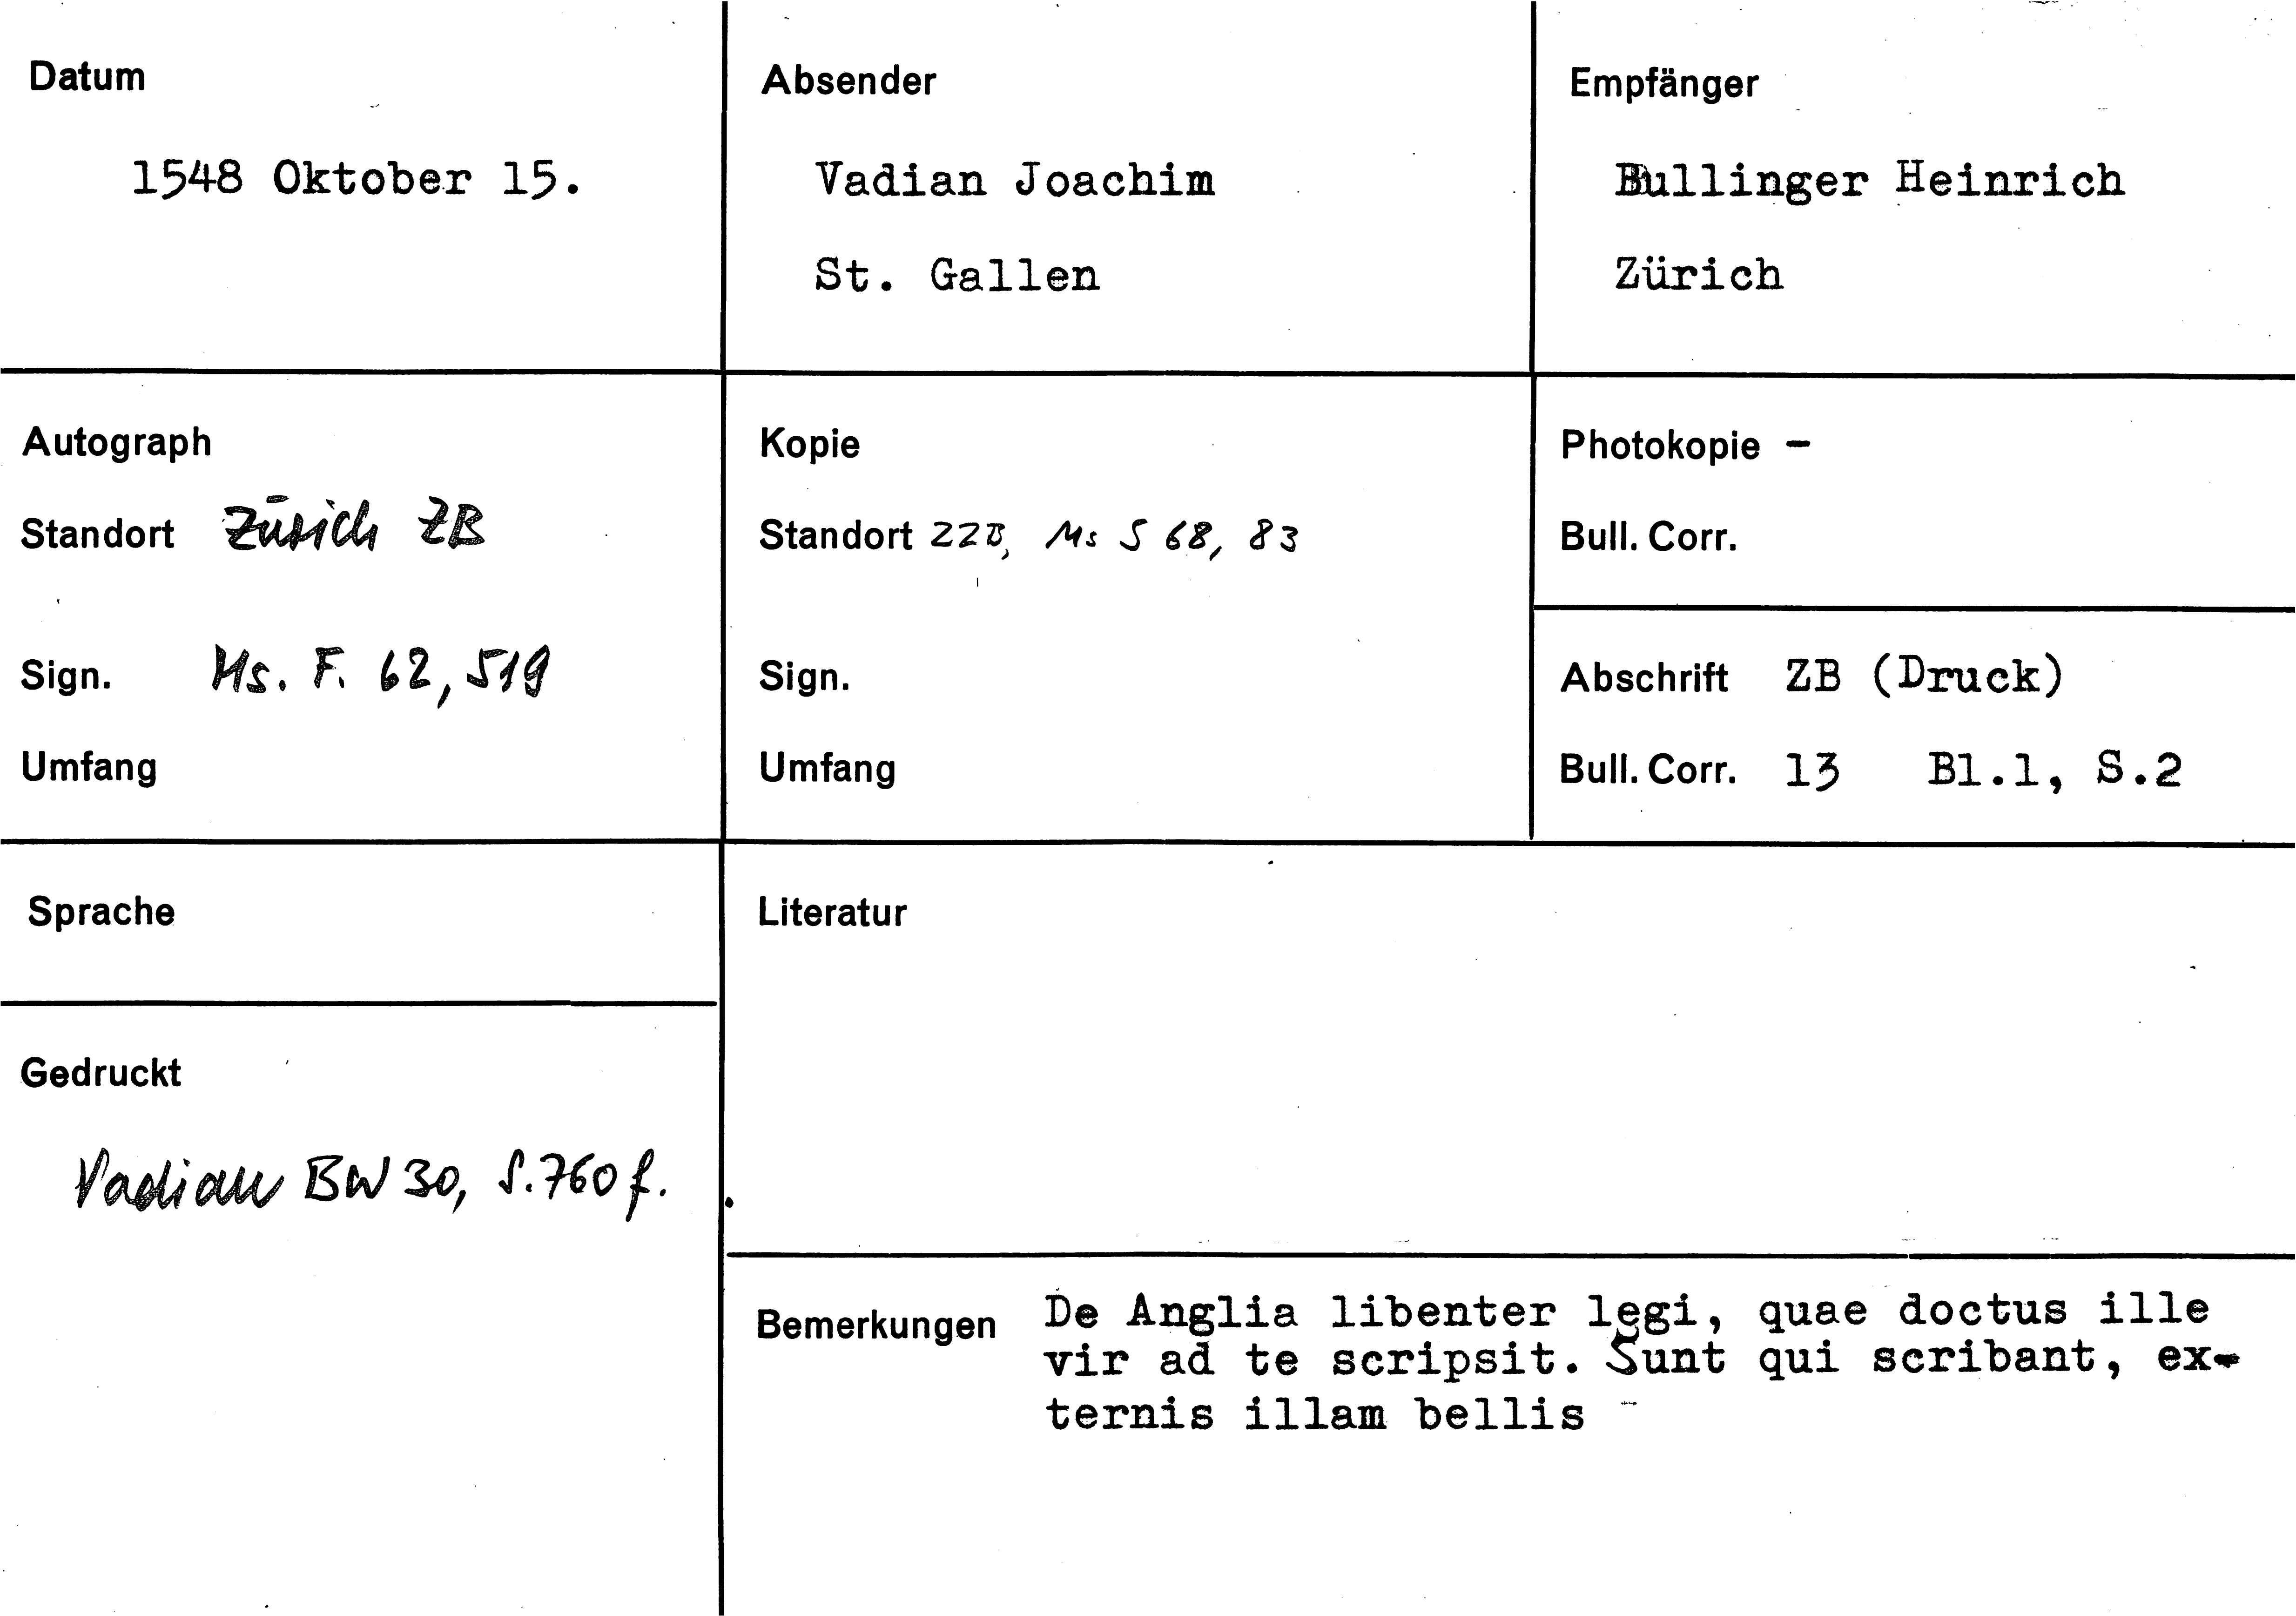 Datum
1548 Oktober 15.
Absender
Vadian Joachim
St. Gallen
Empfänger
Bullinger Heinrich
Zürich
Autograph
Standort Zürich ZB
Sign. Ms. F. 62, 519
Umfang
Kopie
Standort ZZB, Ms S 68, 83
Sign.
Umfang
Photokopie -
Bull. Corr.
Abschrift ZB (Druck)
Bull. Corr. 13 Bl.1, S.2
Sprache
Gedruckt
Vadian BW 30, S. 760 f.
Literatur
Bemerkungen De Anglia libenter legi, quae doctus ille
vir ad te scripsit. Sunt qui scribant, ex-
ternis illam bellis